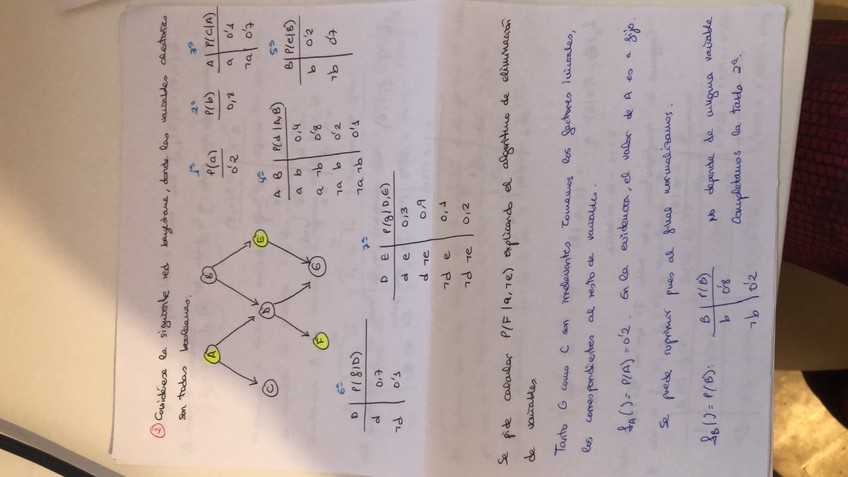 ② Considérese la siguiente red bayesiana, donde las variables aleatorias
son todas booleanas.
A
B
C
D
E
F
G
1º
P(a)
0'2
2º
P(b)
0,8
3º
A P(C|A)
a 0'1
¬a 0'7
4º
A B P(d|A,B)
a b 0,4
a ¬b 0'8
¬a b 0'2
¬a ¬b 0'1
5º
B P(e|B)
b 0'2
¬b 0'7
6º
D P(f|D)
d 0,7
¬d 0'1
7º
D E P(g|D,E)
d e 0,3
d ¬e 0,9
¬d e 0,1
¬d ¬e 0,2
Se pide calcular P(F|a,¬e) explicando el algoritmo de eliminación
de variables
Tanto G como C son irrelevantes. Tomamos los factores iniciales,
los correspondientes al resto de variables.
fA() = P(A) = 0'2. En la evidencia, el valor de A es a fijo.
Se puede suprimir pues al final normalizamos.
fB() = P(B):
B P(B)
b 0'8
¬b 0'2
No depende de ninguna variable
Completamos la tabla 2ª.